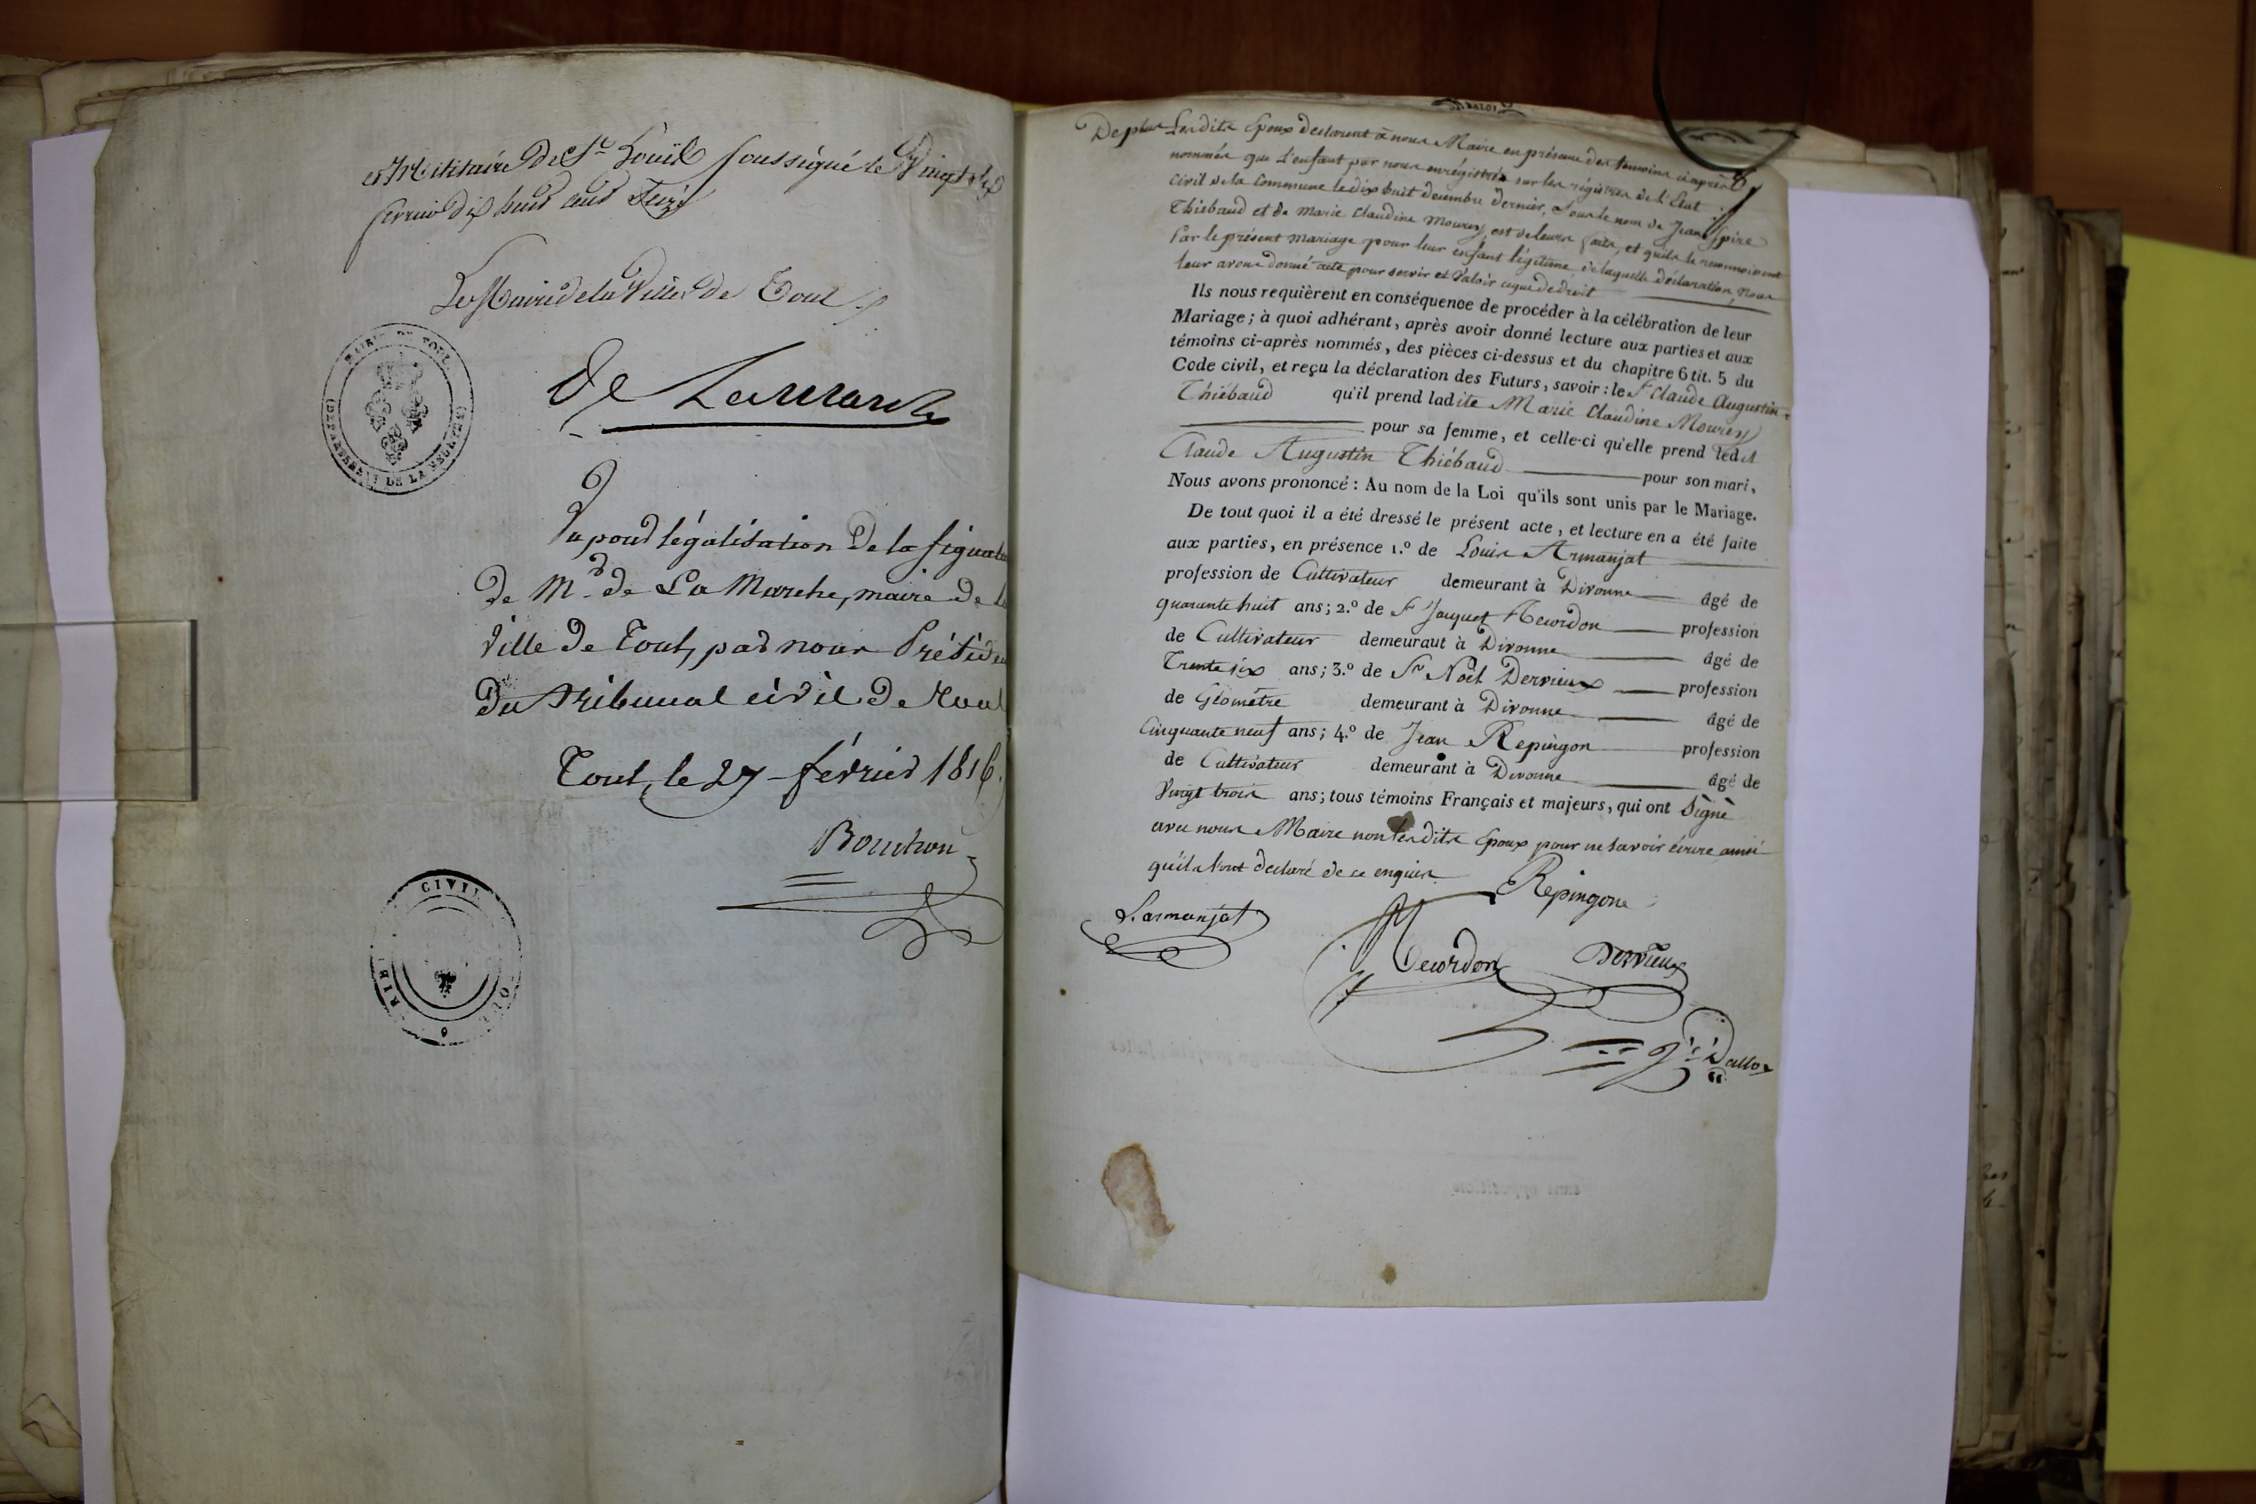 et Militaire De St Louis soussigné le Vingt six
fevrier dix huit cent Seize
Le Maire de la Ville de Toul
De Lamarche
MAIRIE DE TOUL
(DEPARTEMENT DE LA MEURTHE)
Vu pour légalisation de la signatu
de Mr de La Marche, maire de la
ville de Toul, par nous Préside
du tribunal civil de Toul
Toul, le 27 février 1816.
Bouchon
CIVIL
De plus Lesdits Epoux declarent à nous Maire en présence des temoins ci après
nommés que L'enfant par nous enrégistré sur les régistres de l'Etat
Civil de la Commune le dix huit decembre dernier, Sous le nom de Jean Spire
Thiebaud et de Marie Claudine Mourey, est de leurs faits, et qu'ils le reconnoissent
Par le présent mariage pour leur enfant légitime, de laquelle déclaration, Nous
leur avons donné acte pour servir et Valoir ce que de droit
Ils nous requièrent en conséquence de procéder à la célébration de leur
Mariage; à quoi adhérant, après avoir donné lecture aux parties et aux
témoins ci-après nommés, des pièces ci-dessus et du chapitre 6 tit. 5 du
Code civil, et reçu la déclaration des Futurs, savoir: le Sr Claude Augustin
Thiébaud qu'il prend ladite Marie Claudine Mourey
pour sa femme, et celle-ci qu'elle prend ledit
Claude Augustin Thiébaud pour son mari,
Nous avons prononcé: Au nom de la Loi qu'ils sont unis par le Mariage.
De tout quoi il a été dressé le présent acte, et lecture en a été faite
aux parties, en présence 1.º de Louis Armanjat
profession de Cultivateur demeurant à Divonne âgé de
quarante huit ans; 2.º de Sr Jacquet Recordon profession
de Cultivateur demeurant à Divonne âgé de
Trente six ans; 3.º de Sr Noël Dervieux profession
de Géomètre demeurant à Divonne âgé de
Cinquante neuf ans; 4.º de Jean Repingon profession
de Cultivateur demeurant à Divonne âgé de
Vingt trois ans; tous témoins Français et majeurs, qui ont Signé
avec nous Maire non lesdits Epoux pour ne savoir écrire ainsi
qu'ils l'ont declaré de ce enquis.
Repingon
Larmanjat
Recordon
Dervieux